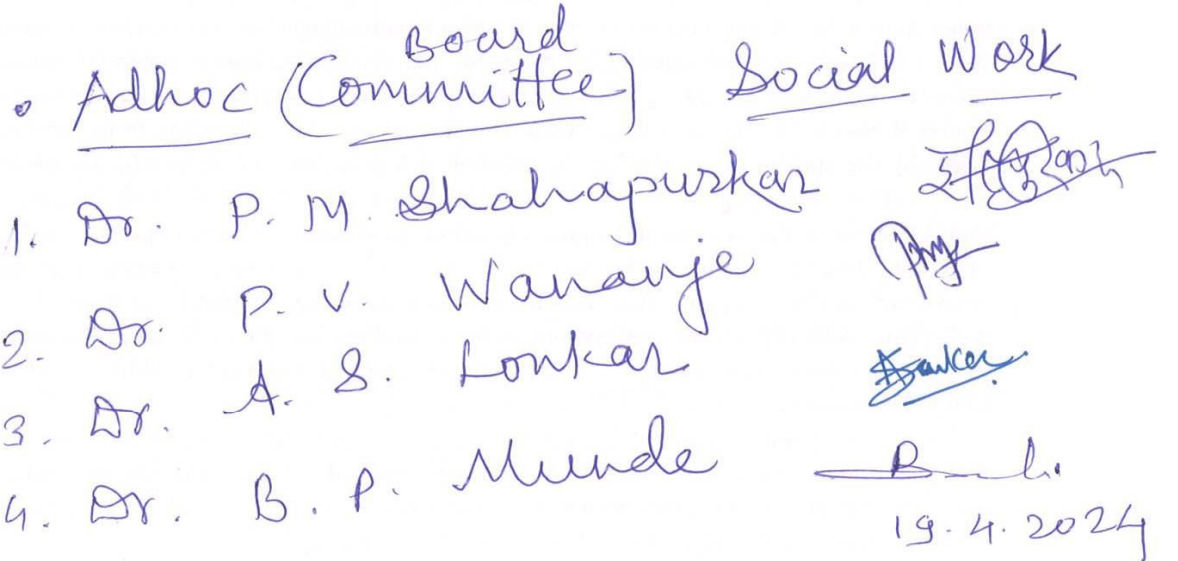 Board
• Adhoc (Committee) Social Work
1. Dr. P. M. Shahapurkar
2. Dr. P. V. Wananje
3. Dr. A. S. Lonkar
4. Dr. B. P. Munde
19.4.2024